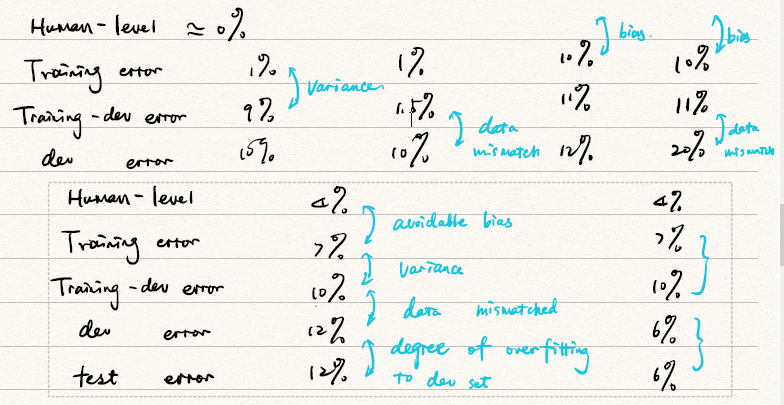 Human-level ≃ 0%
bias. bias
Training error 1% 1% 10% 10%
Variance
Training-dev error 9% 1.5% 11% 11%
data mismatch data mismatch
dev error 10% 12% 20%
Human-level 4% 4%
avoidable bias
Training error 7% 7%
Variance
Training-dev error 10% 10%
data mismatched
dev error 12% 6%
degree of overfitting
test error 12% 6%
to dev set